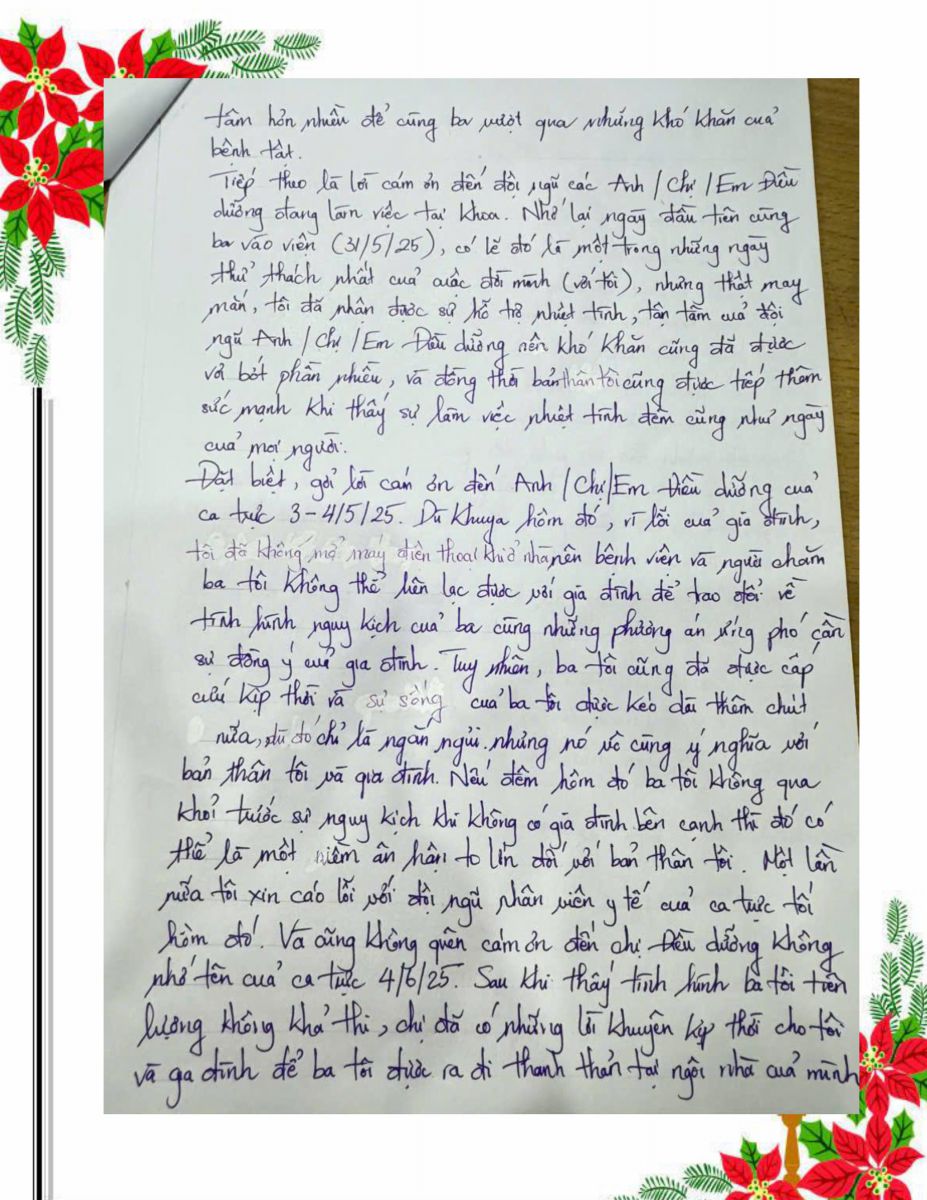 tâm hơn nhiều để cùng ba vượt qua những khó khăn của
bệnh tật.
Tiếp theo là lời cám ơn đến đội ngũ các Anh/Chị/Em Điều
dưỡng đang làm việc tại khoa. Nhớ lại ngày đầu tiên cùng
ba vào viện (31/5/25), có lẽ đó là một trong những ngày
thử thách nhất của cuộc đời mình (với tôi), nhưng thật may
mắn, tôi đã nhận được sự hỗ trợ nhiệt tình, tận tâm của đội
ngũ Anh/Chị/Em Điều dưỡng nên khó khăn cũng đã được
vơi bớt phần nhiều, và đồng thời bản thân tôi cũng được tiếp thêm
sức mạnh khi thấy sự làm việc nhiệt tình đêm cũng như ngày
của mọi người.
Đặt biệt, gởi lời cám ơn đến Anh/Chị/Em Điều dưỡng của
ca trực 3-4/5/25. Dù khuya hôm đó, vì lỗi của gia đình,
tôi đã không mở máy điện thoại khi ở nhà nên bệnh viện và người chăm
ba tôi không thể liên lạc được với gia đình để trao đổi về
tình hình nguy kịch của ba cùng những phương án ứng phó cần
sự đồng ý của gia đình. Tuy nhiên, ba tôi cũng đã được cấp
cứu kịp thời và sự sống của ba tôi được kéo dài thêm chút
nữa, dù đó chỉ là ngắn ngủi nhưng nó vô cùng ý nghĩa với
bản thân tôi và gia đình. Nếu đêm hôm đó ba tôi không qua
khỏi trước sự nguy kịch khi không có gia đình bên cạnh thì đó có
thể là một niềm ân hận to lớn đối với bản thân tôi. Một lần
nữa tôi xin cáo lỗi với đội ngũ nhân viên y tế của ca trực tối
hôm đó. Và cũng không quên cám ơn đến chị Điều dưỡng không
nhớ tên của ca trực 4/6/25. Sau khi thấy tình hình ba tôi tiên
lượng không khả thi, chị đã có những lời khuyên kịp thời cho tôi
và gia đình để ba tôi được ra đi thanh thản tại ngôi nhà của mình